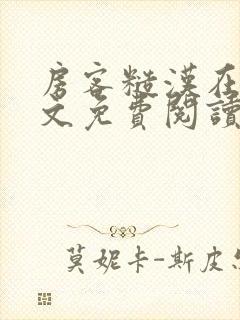 房客糙漢在
文免費閱讀
莫妮卡-斯皮